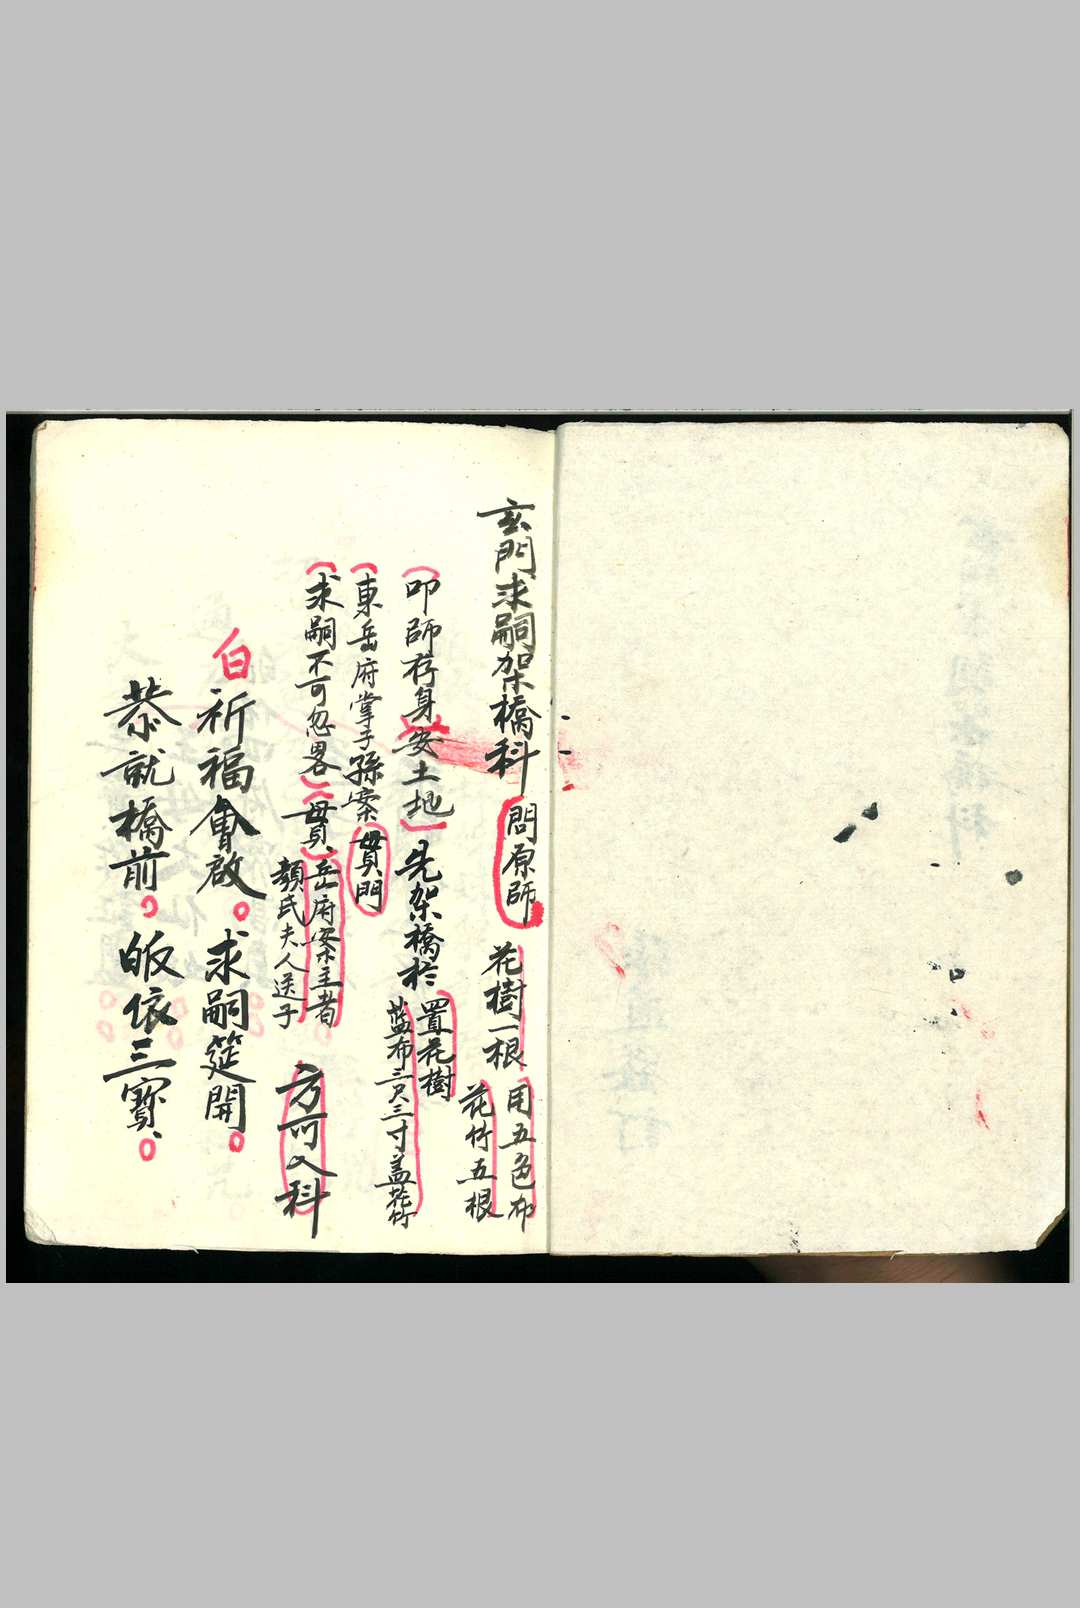 玄門求嗣架橋科 問原師 花樹一根 用五色布 花竹五根
叩師存身安土地 先架橋於 置花樹 藍布三尺三寸盖花竹
東岳府掌子孫案 貫門
求嗣不可忽畧 貫 岳府案主者 顏氏夫人送子 方可入科
白 祈福會啟。求嗣筵開。
恭就橋前。皈依三寶。